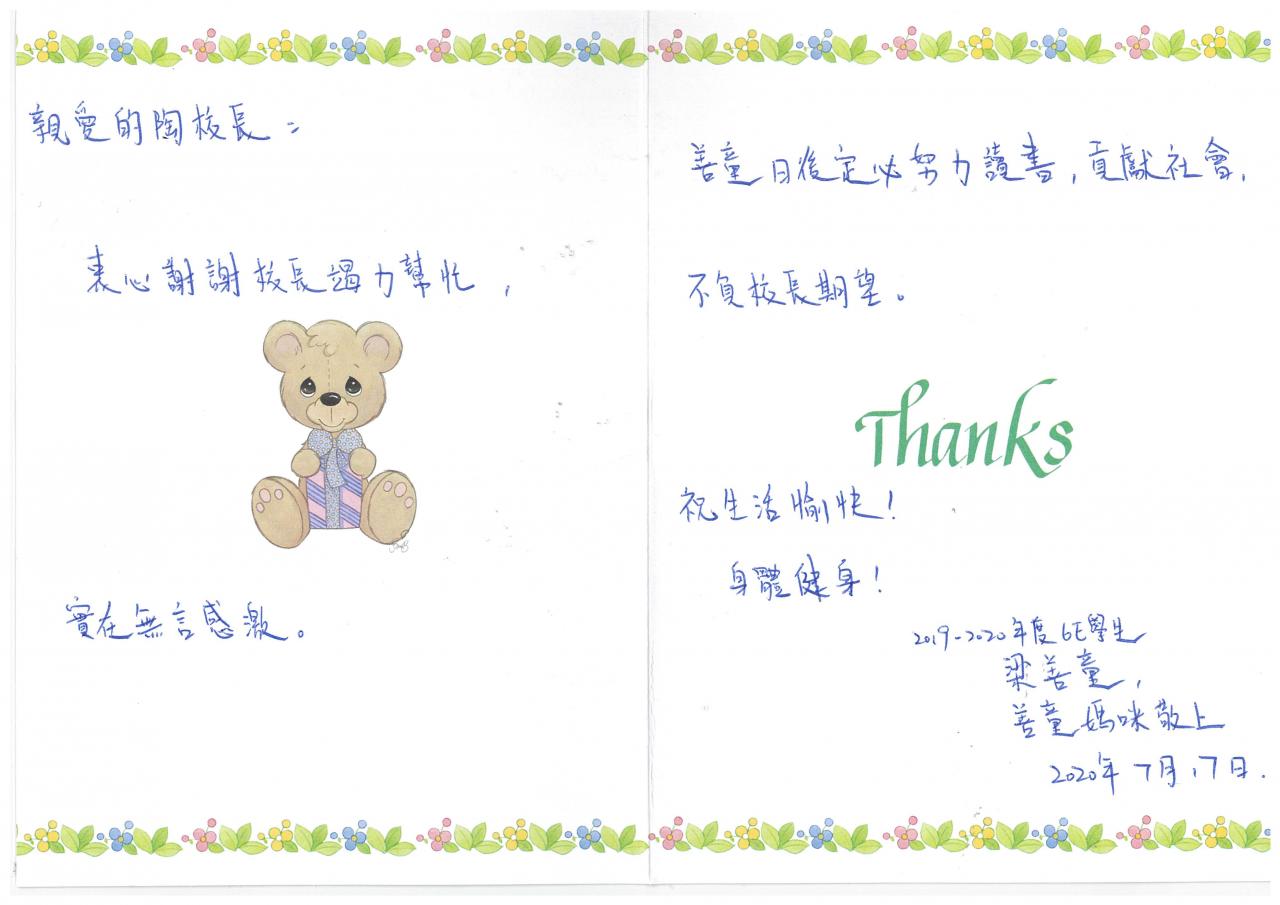 親愛的陶校長：
衷心謝謝校長竭力幫忙，
實在無言感激。
善童日後定必努力讀書，貢獻社會，
不負校長期望。
Thanks
祝生活愉快！
身體健身！
2019-2020年度6E學生
梁善童，
善童媽咪敬上
2020年7月17日.